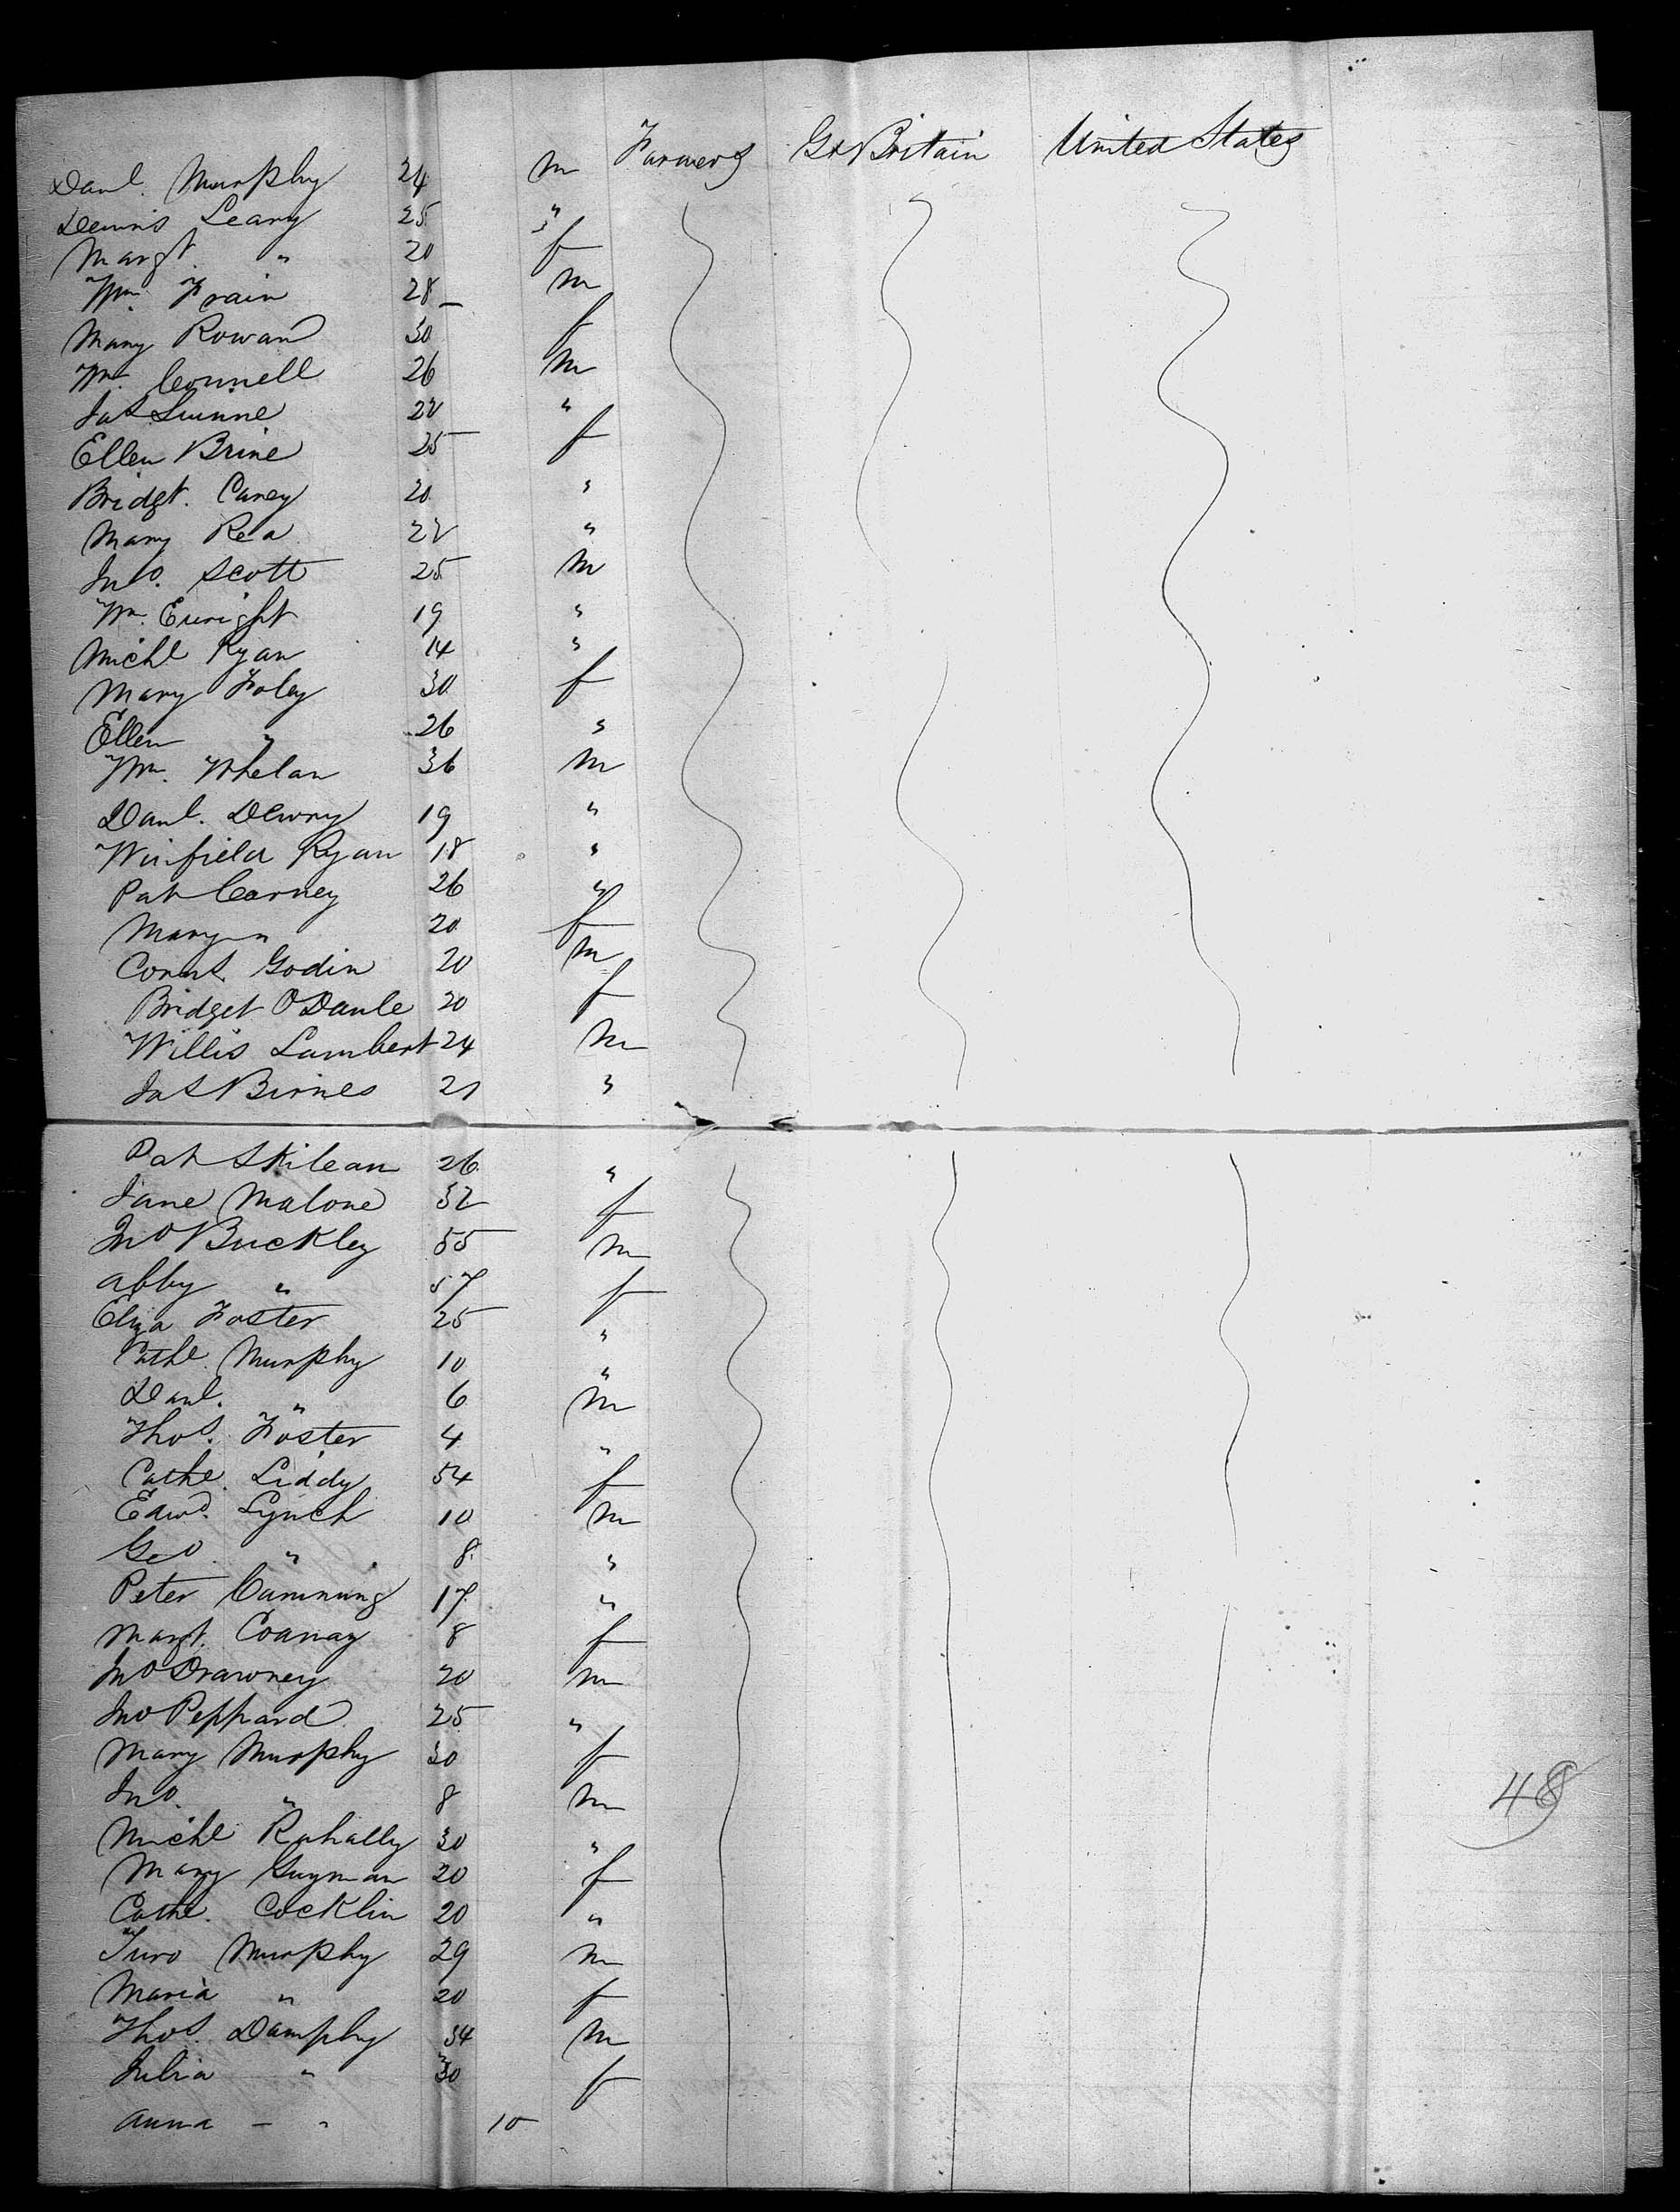 Danl. Murphy 24 m Farmers Gt Britain United States
Dennis Leary 25 "
Margt. " 20 f
Wm. Frain 28 m
Mary Rowan 30 f
Wm. Connell 26 m
Jas 22 "
Ellen Brine 25 f
Bridgt. Carey 20 "
Mary Rea 22 "
Jno. Scott 25 m
Wm. Enright 19 "
Michl Ryan 14 "
Mary Foley 30 f
Ellen " 26 "
Wm. Whelan 36 m
Danl. 19 "
Winfield Ryan 18 "
Pat Carney 26 "
Mary " 20 f
Corns. Godin 20 m
Bridget O Danle 20 f
Willis Lambert 24 m
Jas Birnes 21 "
Pat Skilean 26 "
Jane Malone 32 f
Jno Buckley 55 m
Abby " 57 f
Eliza Foster 25 "
Cathe. Murphy 10 "
Danl. " 6 m
Thos. Foster 4 "
Cathe. Liddy 54 f
Edwd. Lynch 10 m
Geo. " 8 "
Peter Cumming 17 "
Margt. Coanay 8 f
Jno Drawney 20 m
Jno Peppard 25 "
Mary Murphy 30 f
Jno. " 8 m
48
Michl Rahally 30 "
Mary Guyman 20 f
Cathe. Cocklin 20 "
Murphy 29 m
Maria " 20 f
Thos. Damphy 34 m
Julia " 30 f
Anna - " 10